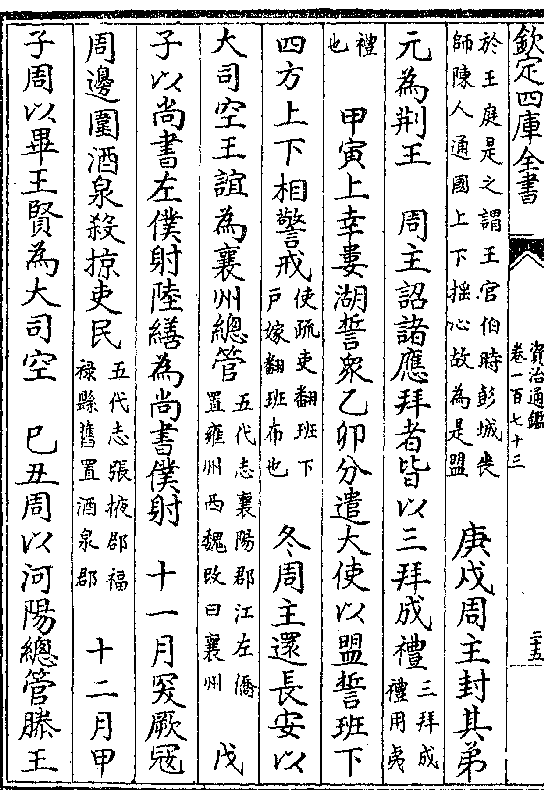 欽定四庫全書
資治通鑑
卷一百七十三
二五
於王庭是之謂王官伯時彭城喪
師陳人通國上下揺心故為是盟
庚戌周主封其弟
元為荆王　周主詔諸應拜者皆以三拜成禮
三拜成
禮用夷
禮
也
甲寅上幸婁湖誓衆乙卯分遣大使以盟誓班下
四方上下相警戒
使疏吏翻班下
戸嫁翻班布也
冬周主還長安以
大司空王誼為襄州總管
五代志襄陽郡江左僑
置雍州西魏改曰襄州
戊
子以尚書左僕射陸繕為尚書僕射　十一月突厥冦
周邊圍酒泉殺掠吏民
五代志張掖郡福
禄縣舊置酒泉郡
十二月甲
子周以畢王賢為大司空　己丑周以河陽總管滕王